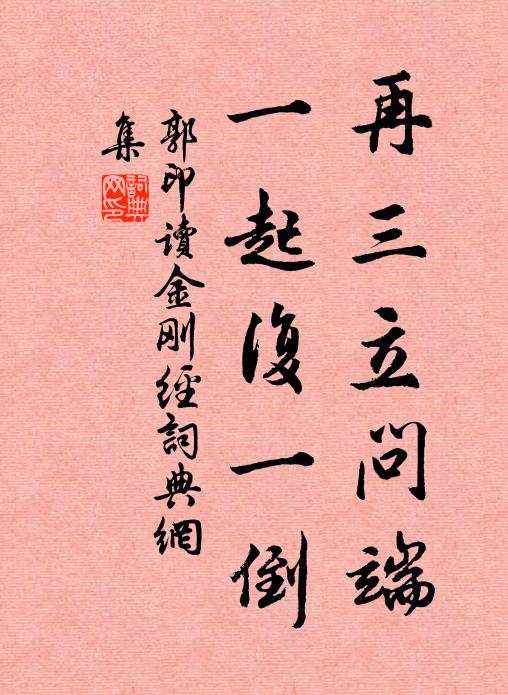 再三立問端
一起復一倒
郭印讀金剛經詞典網
集
詞典
网印